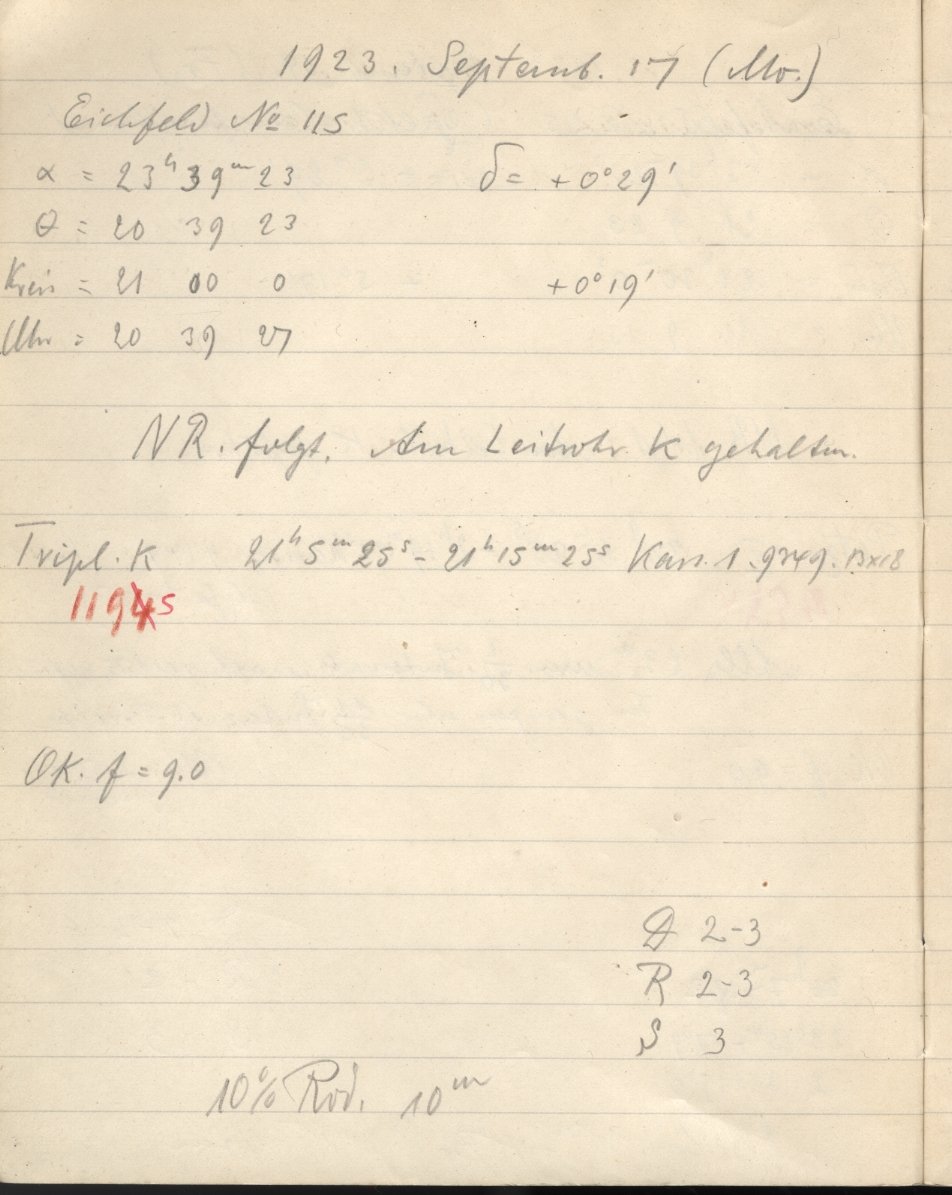 1923. Septemb. 17 (Mo.)
Eichfeld No 115
α = 23h 39m 23 δ = +0° 29'
θ = 20 39 23
Kreis = 21 00 0 +0° 19'
Uhr = 20 39 27
NR. folgt. Am Leitrohr K gehalten.
Tripl. K 21h 5m 25s - 21h 15m 25s Kass. 1. 9749. 13x18
1194 5
OK. f = 9.0
D 2-3
R 2-3
S 3
10% Rod. 10m